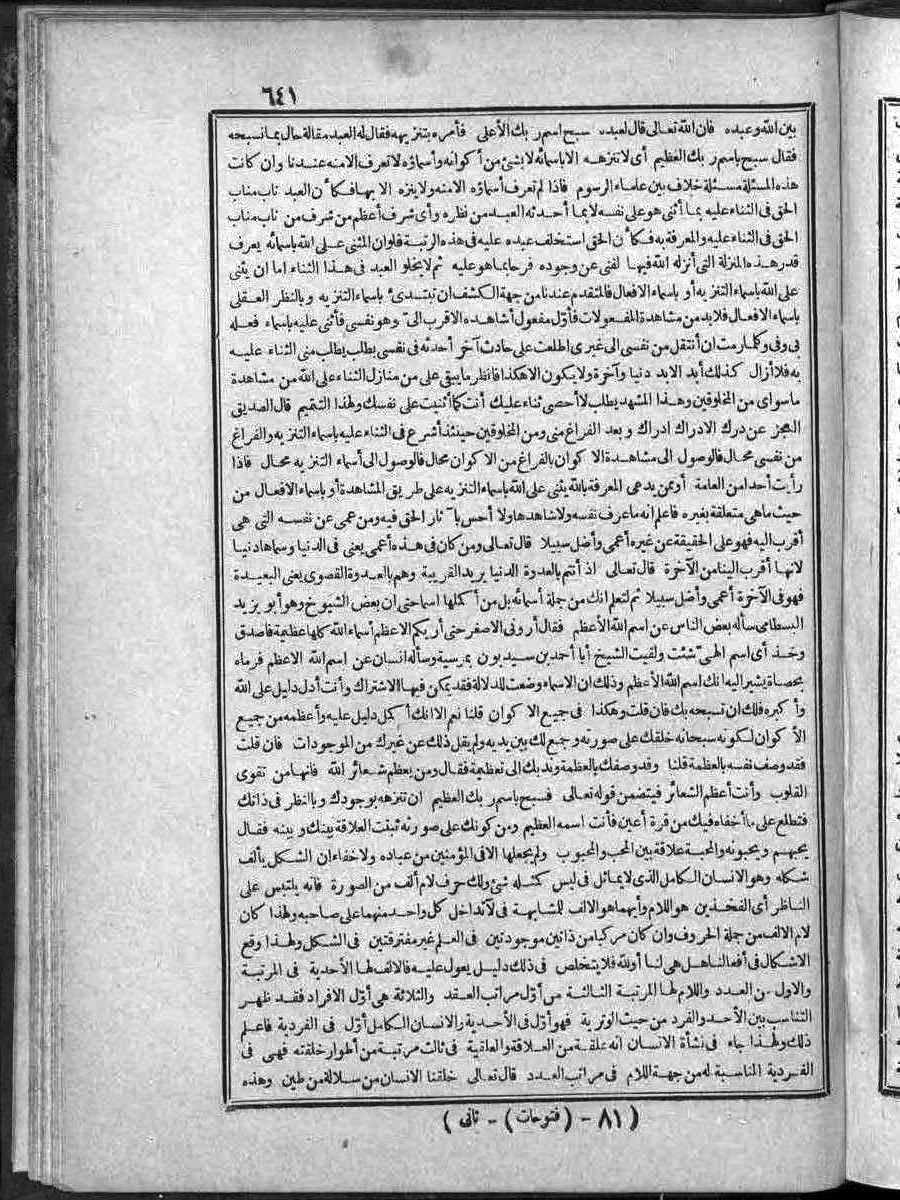 ٦٤١
بين الله وعبده فان الله تعالى قال لعبده سبح اسم ربك الأعلى فأمره بتنزيهه فقال له العبد مقالة حال بما نسبحه
فقال سبح باسم ربك العظيم أى لا تنزهه الا باسمائه لا بشئ من أكوانه وأسماؤه لا تعرف الا منه عندنا وان كانت
هذه المسئلة مسئلة خلاف بين علماء الرسوم فاذا لم تعرف أسماؤه الا منه ولا ينزه الا بها فكأن العبد ناب مناب
الحق فى الثناء عليه بما أثنى هو على نفسه لا بما أحدثه العبد من نظره وأى شرف أعظم من شرف من ناب مناب
الحق فى الثناء عليه والمعرفة به فكأن الحق استخلف عبده عليه فى هذه الرتبة فلو ان المثنى على الله باسمائه يعرف
قدر هذه المنزلة التى أنزله الله فيها لفنى عن وجوده فرحا بما هو عليه ثم لا يخلو العبد فى هذا الثناء اما ان يثنى
على الله باسماء التنزيه أو باسماء الافعال فالمتقدم عندنا من جهة الكشف ان تبتدئ باسماء التنزيه وبالنظر العقلى
باسماء الافعال فلا بد من مشاهدة المفعولات فأول مفعول أشاهده الاقرب الى وهو نفسى فأثنى عليه باسماء فعله
بى وفى وكلما رمت ان أنتقل من نفسى الى غيرى اطلعت على حادث آخر أحدثه فى نفسى يطلب بطلب منى الثناء عليه
به فلا أزال كذلك أبد الابد دنيا وآخرة ولا يكون الا هكذا فانظر ما يبقى على من منازل الثناء على الله من مشاهدة
ما سواى من المخلوقين وهذا المشهد يطلب لا أحصى ثناء عليك أنت كما أثنيت على نفسك ولهذا التتميم قال الصديق
العجز عن درك الادراك ادراك وبعد الفراغ منى ومن المخلوقين حينئذ أشرع فى الثناء عليه باسماء التنزيه والفراغ
من نفسى محال فالوصول الى مشاهدة الاكوان بالفراغ من الاكوان محال فالوصول الى أسماء التنزيه محال فاذا
رأيت أحدا من العامة أو ممن يدعى المعرفة بالله يثنى على الله باسماء التنزيه على طريق المشاهدة أو باسماء الافعال من
حيث ما هى متعلقة بغيره فاعلم انه ما عرف نفسه ولا شاهدها ولا أحس بآثار الحق فيه ومن عمى عن نفسه التى هى
أقرب اليه فهو على الحقيقة عن غيره أعمى وأضل سبيلا قال تعالى ومن كان فى هذه أعمى يعنى فى الدنيا وسماها دنيا
لانها أقرب الينا من الآخرة قال تعالى اذ أنتم بالعدوة الدنيا يريد القريبة وهم بالعدوة القصوى يعنى البعيدة
فهو فى الآخرة أعمى وأضل سبيلا ثم لتعلم انك من جملة أسمائه بل من أكملها اسما حتى ان بعض الشيوخ وهو أبو يزيد
البسطامى سأله بعض الناس عن اسم الله الأعظم فقال أرونى الاصغر حتى أريكم الاعظم أسماء الله كلها عظيمة فاصدق
وخذ أى اسم الهى شئت ولقيت الشيخ أبا أحمد بن سيدبون بمرسية وسأله انسان عن اسم الله الاعظم فرماه
بحصاة يشير اليه انك اسم الله الأعظم وذلك ان الاسماء وضعت للدلالة فقد يمكن فيها الاشتراك وأنت أدل دليل على الله
وأكبره فلك ان تسبحه بك فان قلت وهكذا فى جميع الاكوان قلنا نعم الا انك أكمل دليل عليه وأعظمه من جميع
الأكوان لكونه سبحانه خلقك على صورته وجمع لك بين يديه ولم يقل ذلك عن غيرك من الموجودات فان قلت
فقد وصف نفسه بالعظمة قلنا وقد وصفك بالعظمة وندبك الى تعظيمه فقال ومن يعظم شعائر الله فانها من تقوى
القلوب وأنت أعظم الشعائر فيتضمن قوله تعالى فسبح باسم ربك العظيم ان تنزهه بوجودك وبالنظر فى ذاتك
فتطلع على ما أخفاه فيك من قرة أعين فأنت اسمه العظيم ومن كونك على صورته ثبتت العلاقة بينك وبينه فقال
يحبهم ويحبونه والمحبة علاقة بين المحب والمحبوب ولم يجعلها الا فى المؤمنين من عباده ولا خفاء ان الشكل يألف
شكله وهو الانسان الكامل الذى لا يماثل فى ليس كمثله شئ ولك حرف لام ألف من الصورة فانه يلتبس على
الناظر أى الفخذين هو اللام وأيهما هو الالف للمشابهة فى لا تداخل كل واحد منهما على صاحبه ولهذا كان
لام الالف من جملة الحروف وان كان مركبا من ذاتين موجودتين فى العلم غير مفترقتين فى الشكل ولهذا وقع
الاشكال فى أفعالنا هل هى لنا أو لله فلا يتخلص فى ذلك دليل يعول عليه فالالف لها الأحدية فى المرتبة
والاول من العدد واللام لها المرتبة الثالثة من أول مراتب العقد والثلاثة هى أول الافراد فقد ظهر
التناسب بين الأحد والفرد من حيث الوترية فهو أول فى الأحدية والانسان الكامل أول فى الفردية فاعلم
ذلك ولهذا جاء فى نشأة الانسان انه علقة من العلاقة والعلقية فى ثالث مرتبة من أطوار خلقته فهى فى
الفردية المناسبة له من جهة اللام فى مراتب العدد قال تعالى خلقنا الانسان من سلالة من طين وهذه
( ٨١ - (فتوحات) - ثانى )